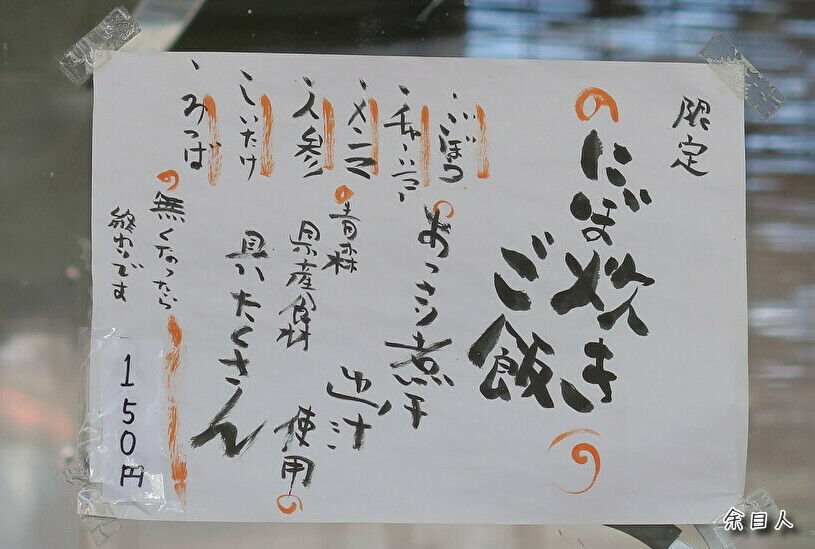 限定
にぼ炊き
ご飯
あっさり煮干
出汁
青森
県産食材
使用
具いたくさん
・ごぼう
・チャーシュー
・メンマ
・人参
・しいたけ
・みつば
無くなったら
終わりです
150円
余目人